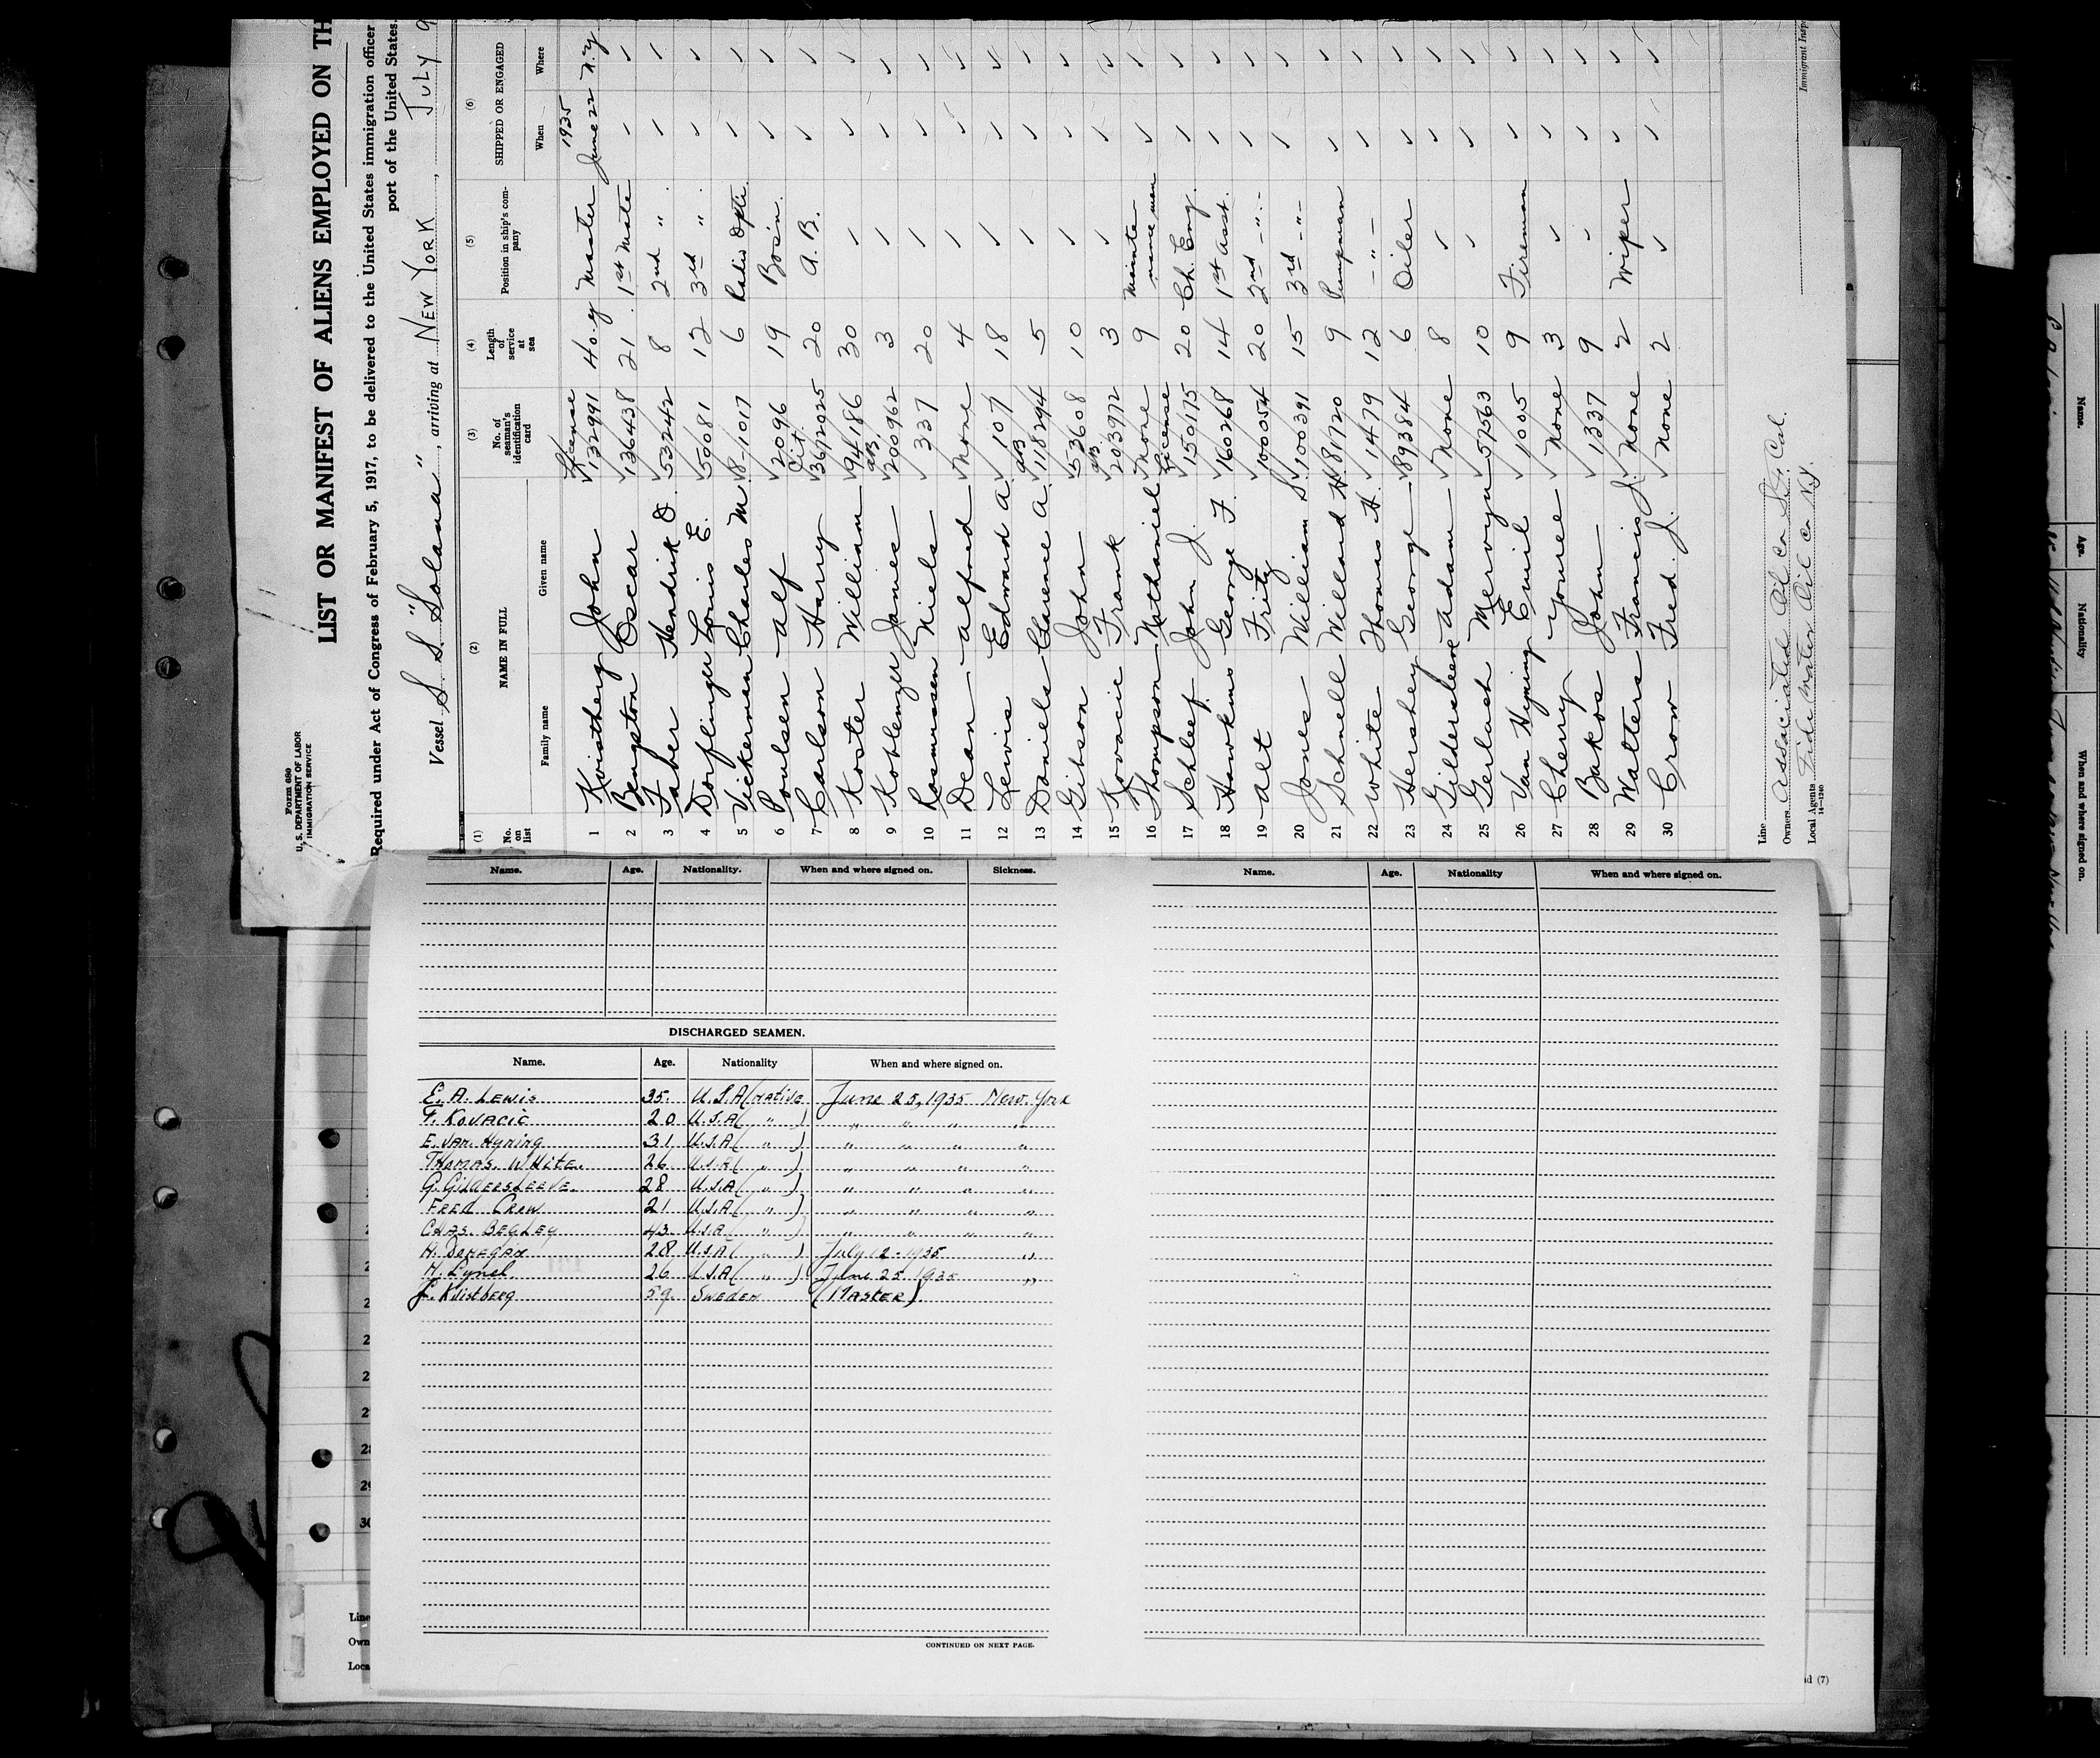 Form 680
U. S. DEPARTMENT OF LABOR
IMMIGRATION SERVICE
LIST OR MANIFEST OF ALIENS EMPLOYED ON TH
Required under Act of Congress of February 5, 1917, to be delivered to the United States immigration officer
port of the United States.
Vessel S. S. "Solana", arriving at NEW YORK, JULY 9
(1) (2) (3) (4) (5) (6)
No. on list NAME IN FULL No. of seaman's identification card Length of service at sea Position in ship's company SHIPPED OR ENGAGED
Family name Given name When Where
License 1935
1 Kvistberg John ✓132991 40 y Master June 22 N.Y
2 Bengston Oscar ✓136438 21 1st Mate ✓ ✓
3 Faber Hendrick D. ✓53242 8 2nd " ✓ ✓
4 Dorflinger Louis E. ✓50081 12 3rd " ✓ ✓
5 Vickerman Charles M ✓R-1017 6 Radio Optr. ✓ ✓
6 Poulsen Alf ✓2096 19 Bos'n. ✓ ✓
Cit.
7 Carlson Harry ✓3672025 20 A. B. ✓ ✓
8 Koster William ✓94186 30 ✓ ✓ ✓
AB.
9 Koblenzer James ✓200962 3 ✓ ✓ ✓
10 Rasmussen Niels ✓337 20 ✓ ✓ ✓
11 Dean Alfred ✓None 4 ✓ ✓ ✓
12 Lewis Edward A. ✓107 18 ✓ ✓ ✓
AB
13 Daniels Clarence A. ✓118294 5 ✓ ✓ ✓
14 Gibson John ✓53608 10 ✓ ✓ ✓
AB.
15 Kovacic Frank ✓203972 3 ✓ ✓ ✓
16 Thompson Nathaniel ✓None 9 Maintenance man ✓ ✓
License
17 Schleef John J. ✓150175 20 Ch. Eng. ✓ ✓
18 Hawkins George F. ✓160268 14 1st Asst. ✓ ✓
19 Alt Fritz ✓1000054 20 2nd -"- ✓ ✓
20 Jones William S. ✓100391 15 3rd -"- ✓ ✓
21 Schnell Willard H ✓81720 9 Pumpman ✓ ✓
22 White Thomas H. ✓1479 12 -"- ✓ ✓
23 Hershey George ✓89384 6 Oiler ✓ ✓
24 Gildersleeve Adam ✓None 8 ✓ ✓ ✓
25 Gerlach Mervoyn ✓57563 10 ✓ ✓ ✓
26 Van Hyning Emil ✓1005 9 Fireman ✓ ✓
27 Cherry Younee ✓None 3 ✓ ✓ ✓
28 Bakos John ✓1337 9 ✓ ✓ ✓
29 Walters Francis J. ✓None 2 Wiper ✓ ✓
30 Crow Fred. J. ✓None 2 ✓ ✓ ✓
Line
Owners Associated Oil Co. S.F. Cal.
Local Agents Tide Water Oil Co N.Y.
14—1240
Immigrant Insp
Name. Age. Nationality. When and where signed on. Sickness.
DISCHARGED SEAMEN.
Name. Age. Nationality When and where signed on.
E. A. LEWIS 35. U.S.A (NATIVE June 25, 1935 New York
F. KOVACIC 20 U.S.A ( " ) " " " "
E. VAN. HYNING 31 U.S.A ( " ) " " " "
THOMAS. WHITE. 26 U.S.A ( " ) " " " "
G. GILDERSLEEVE. 28 U.S.A ( " ) " " " "
FRED CROW 21 U.S.A ( " ) " " " "
CHAS. BEGLEY 43 U.S.A ( " ) " " " "
H. DONEGAN 28 U.S.A ( " ) July 12-1935 "
H. Lynel. 26 U.S.A ( " ) June 25 1935 "
J. KVISTBERG 59. SWEDEN (MASTER)
CONTINUED ON NEXT PAGE.
Name. Age. Nationality When and where signed on.
28
29
30
Line
Own
Loca
nd (7)
Name. Age. Nationality When and where signed on.